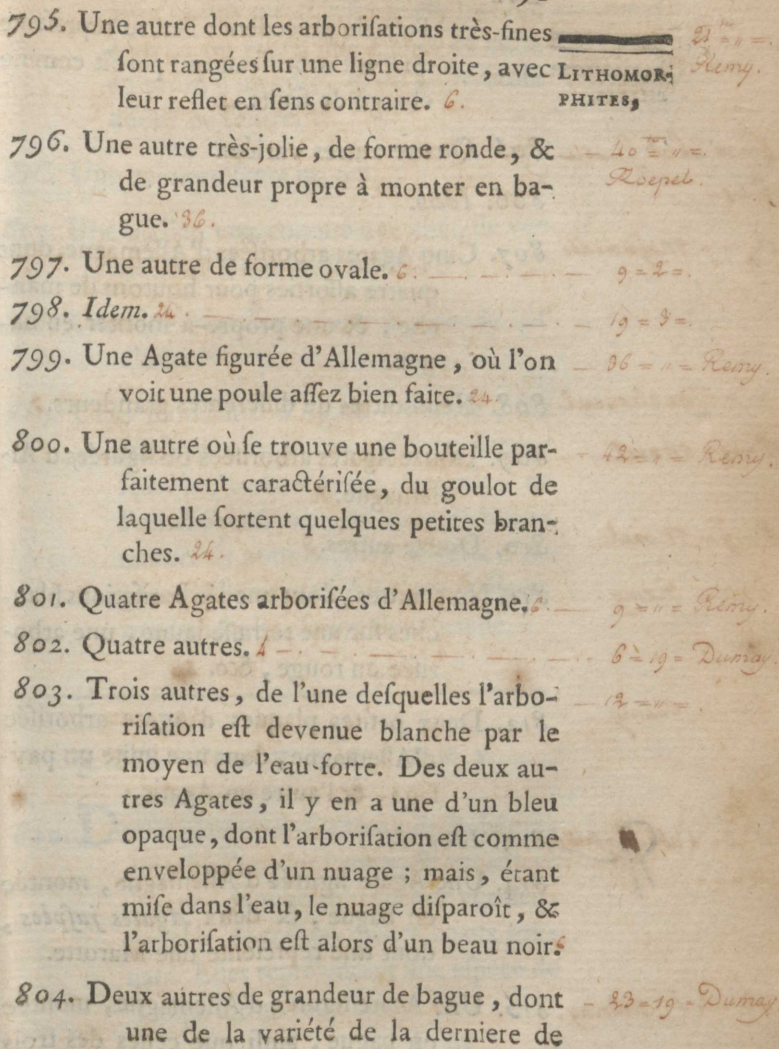 795. Une autre dont les arboriſations très-fines 21 = " =.
ſont rangées ſur une ligne droite, avec LITHOMOR- Remy.
leur reflet en ſens contraire. 6. PHITES,
796. Une autre très-jolie, de forme ronde, & 40 = " =.
de grandeur propre à monter en ba-
gue. 36.
797. Une autre de forme ovale. 6. 9 = 2 =.
798. Idem. 24. 19 = 3 =.
799. Une Agate figurée d'Allemagne, où l'on 36 = " = Remy.
voit une poule aſſez bien faite. 24.
800. Une autre où ſe trouve une bouteille par- 42 = " = Remy.
faitement caractériſée, du goulot de
laquelle ſortent quelques petites bran-
ches. 24.
801. Quatre Agates arboriſées d'Allemagne. 6. 9 = " = Remy.
802. Quatre autres. 4 6 = 19 = Dumay.
803. Trois autres, de l'une deſquelles l'arbo- 12 = " =.
riſation eſt devenue blanche par le
moyen de l'eau-forte. Des deux au-
tres Agates, il y en a une d'un bleu
opaque, dont l'arboriſation eſt comme
enveloppée d'un nuage ; mais, étant
miſe dans l'eau, le nuage diſparoît, &
l'arboriſation eſt alors d'un beau noir. 6
804. Deux autres de grandeur de bague, dont 23 = 19 = Dumay
une de la variété de la derniere de